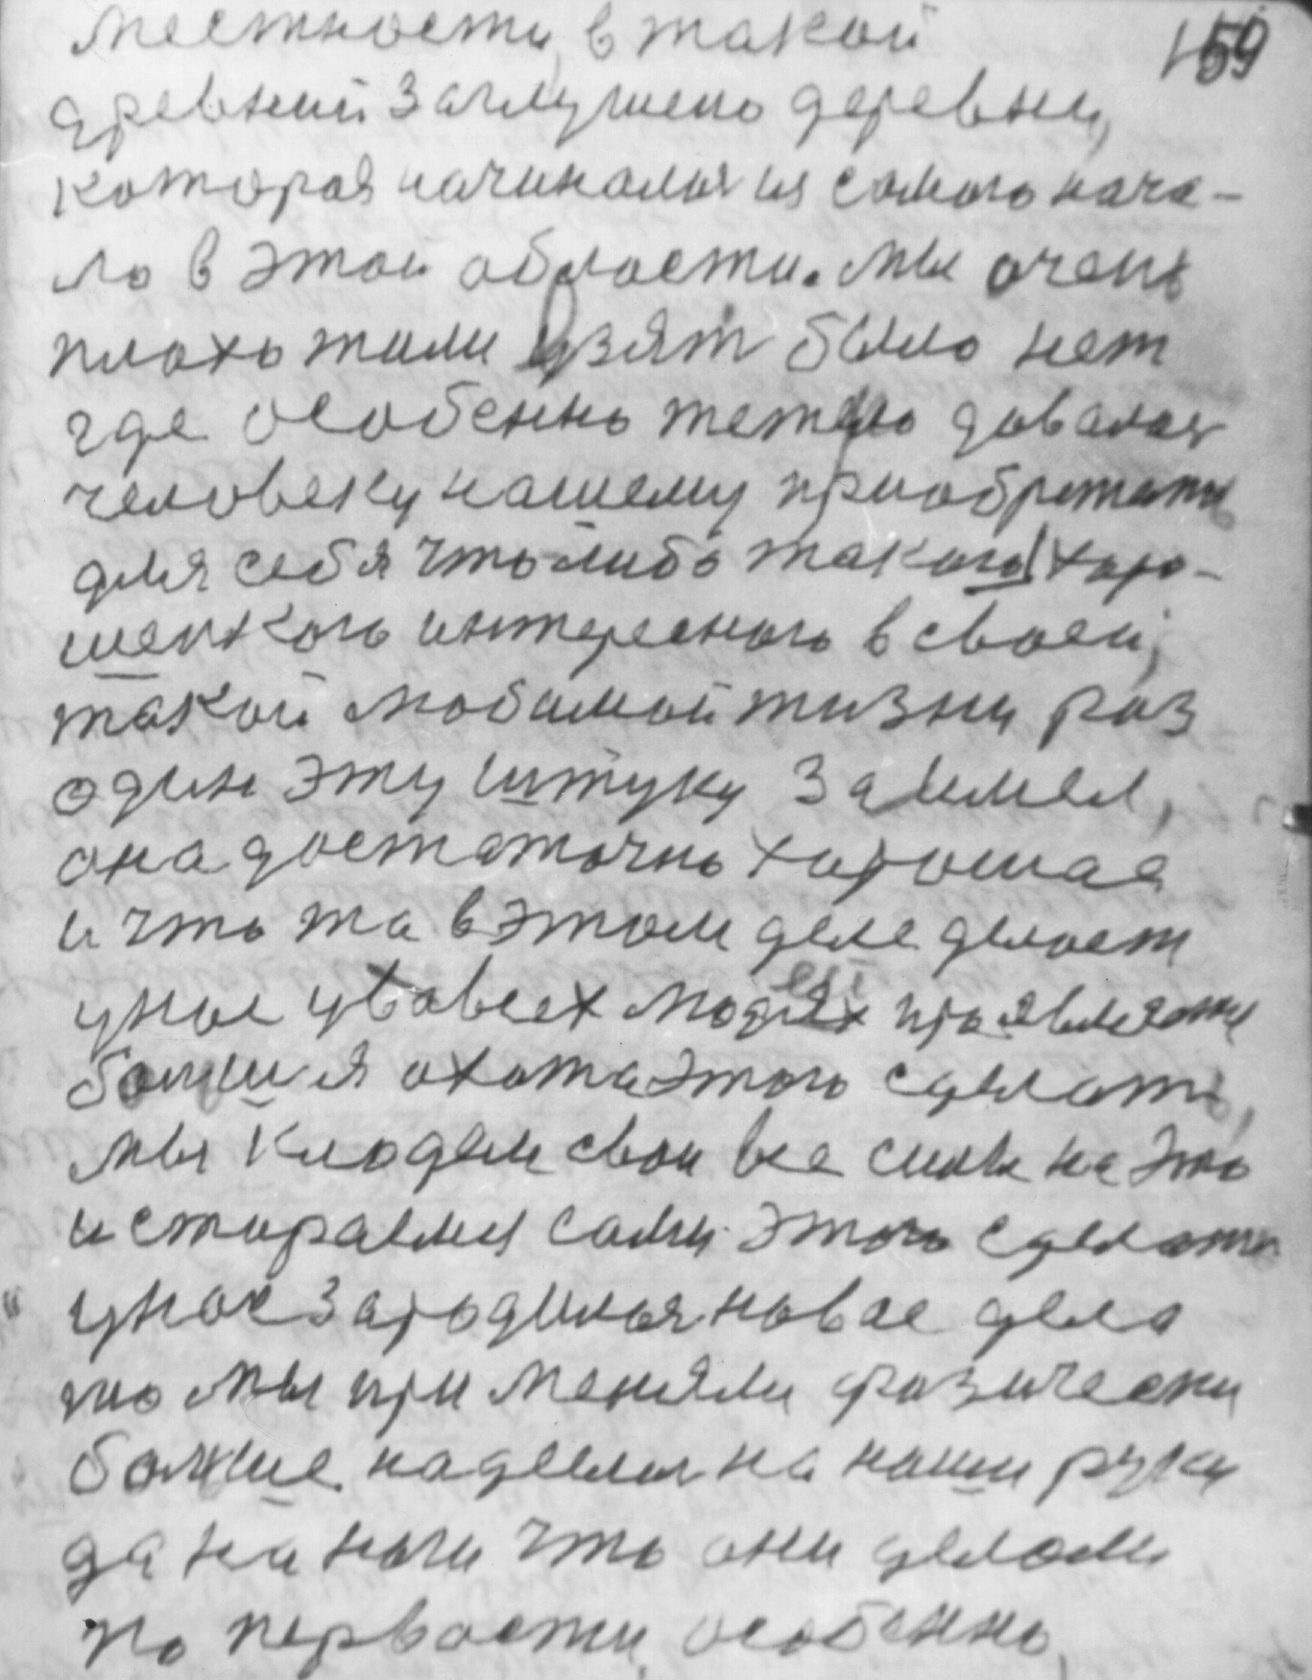 159
местности, в такой
древний заглушено деревни,
которая начиналась из самого нача-
ло в этой области. мы очень
плохо жили взят было нет
где особенно тежело давалося
человеку нашему приобретать
для себя что либо такого хоро-
шенкого интересного в своей,
такой любимой жизни раз
один эту штуку заимел,
она достаточно хорошая
и что то в этом деле делает
у нас у вовсех людей проявляется
больши я охота этого сделать,
мы кладем свои все силы на это
и стораемся сами этого сделать
у нас зародилося новое дело
то мы при меняли физически
больше надеелся на наши руки
да на ноги что они делали
по первости, особенно,